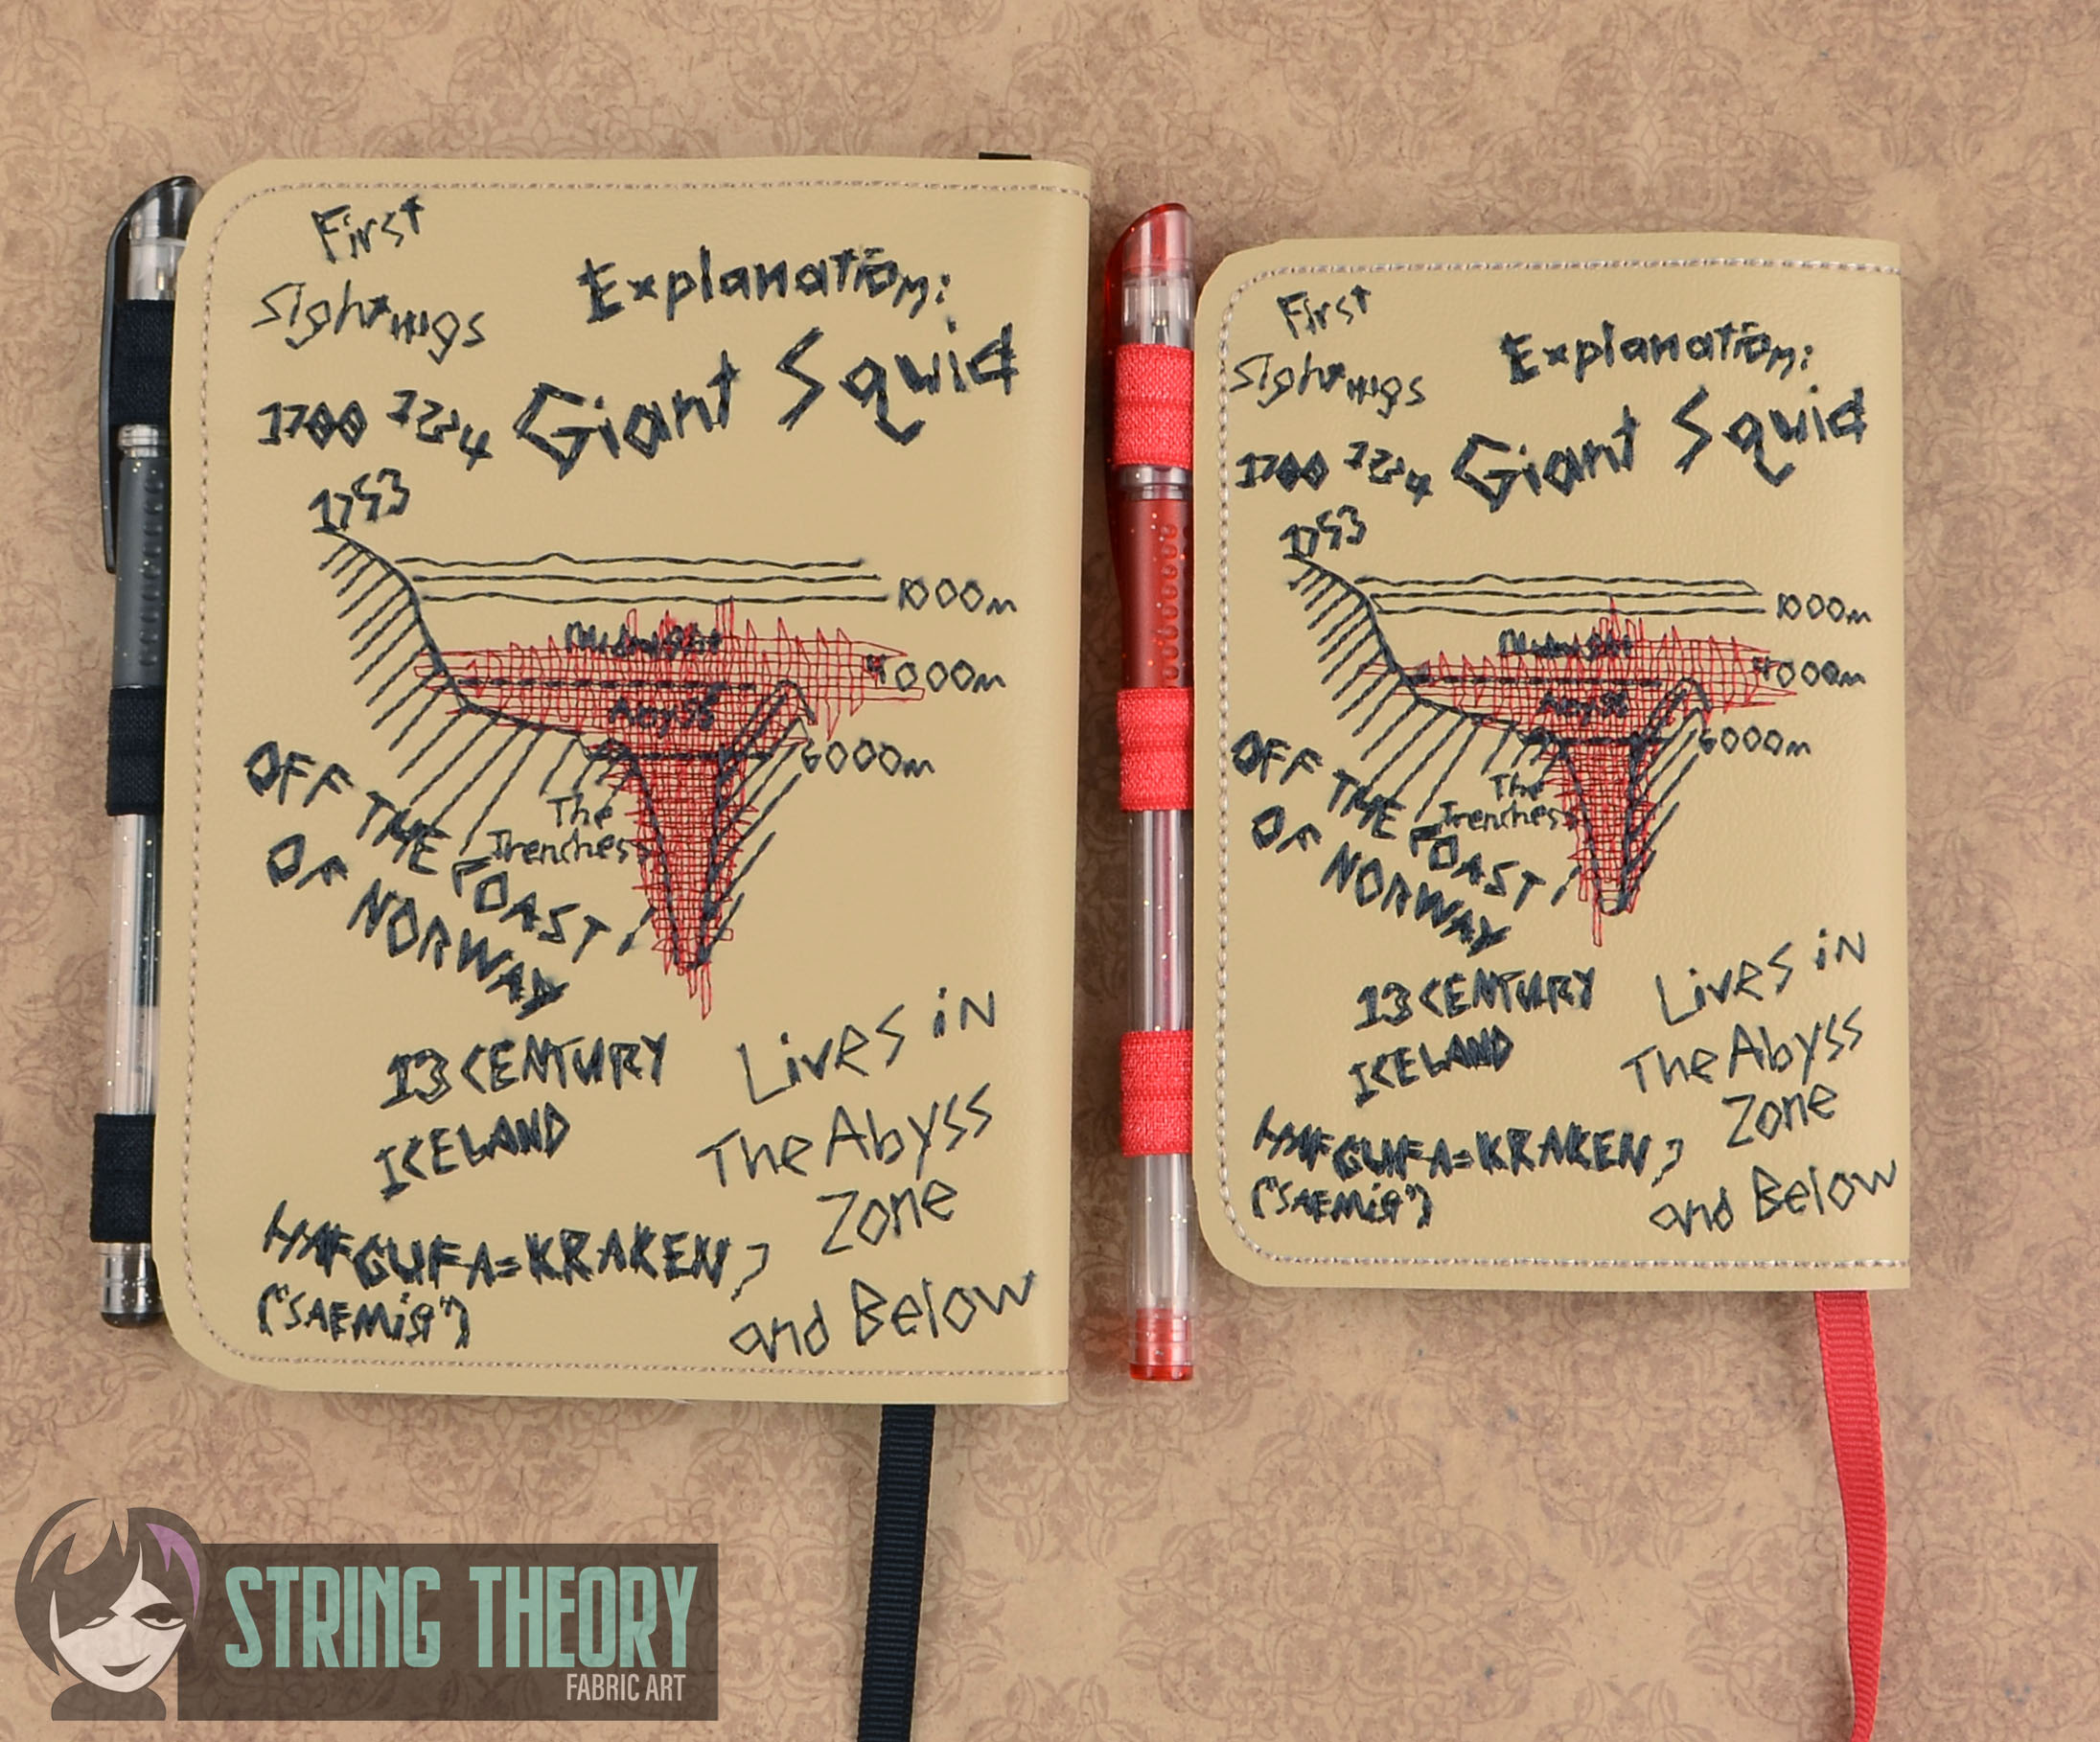 First
Sightings
Explanation:
1700 1734
Giant Squid
1753
1000m
Midnight
4000m
Abyss
6000m
The
Trenches
OFF THE COAST
OF NORWAY
13 CENTURY
ICELAND
HAFGUFA=KRAKEN?
("SAEMIST")
Lives in
The Abyss
Zone
and Below
First
Sightings
Explanation:
1700 1734
Giant Squid
1753
1000m
Midnight
4000m
Abyss
6000m
The
Trenches
OFF THE COAST
OF NORWAY
13 CENTURY
ICELAND
HAFGUFA=KRAKEN?
("SAEMIST")
Lives in
The Abyss
Zone
and Below
STRING THEORY
FABRIC ART